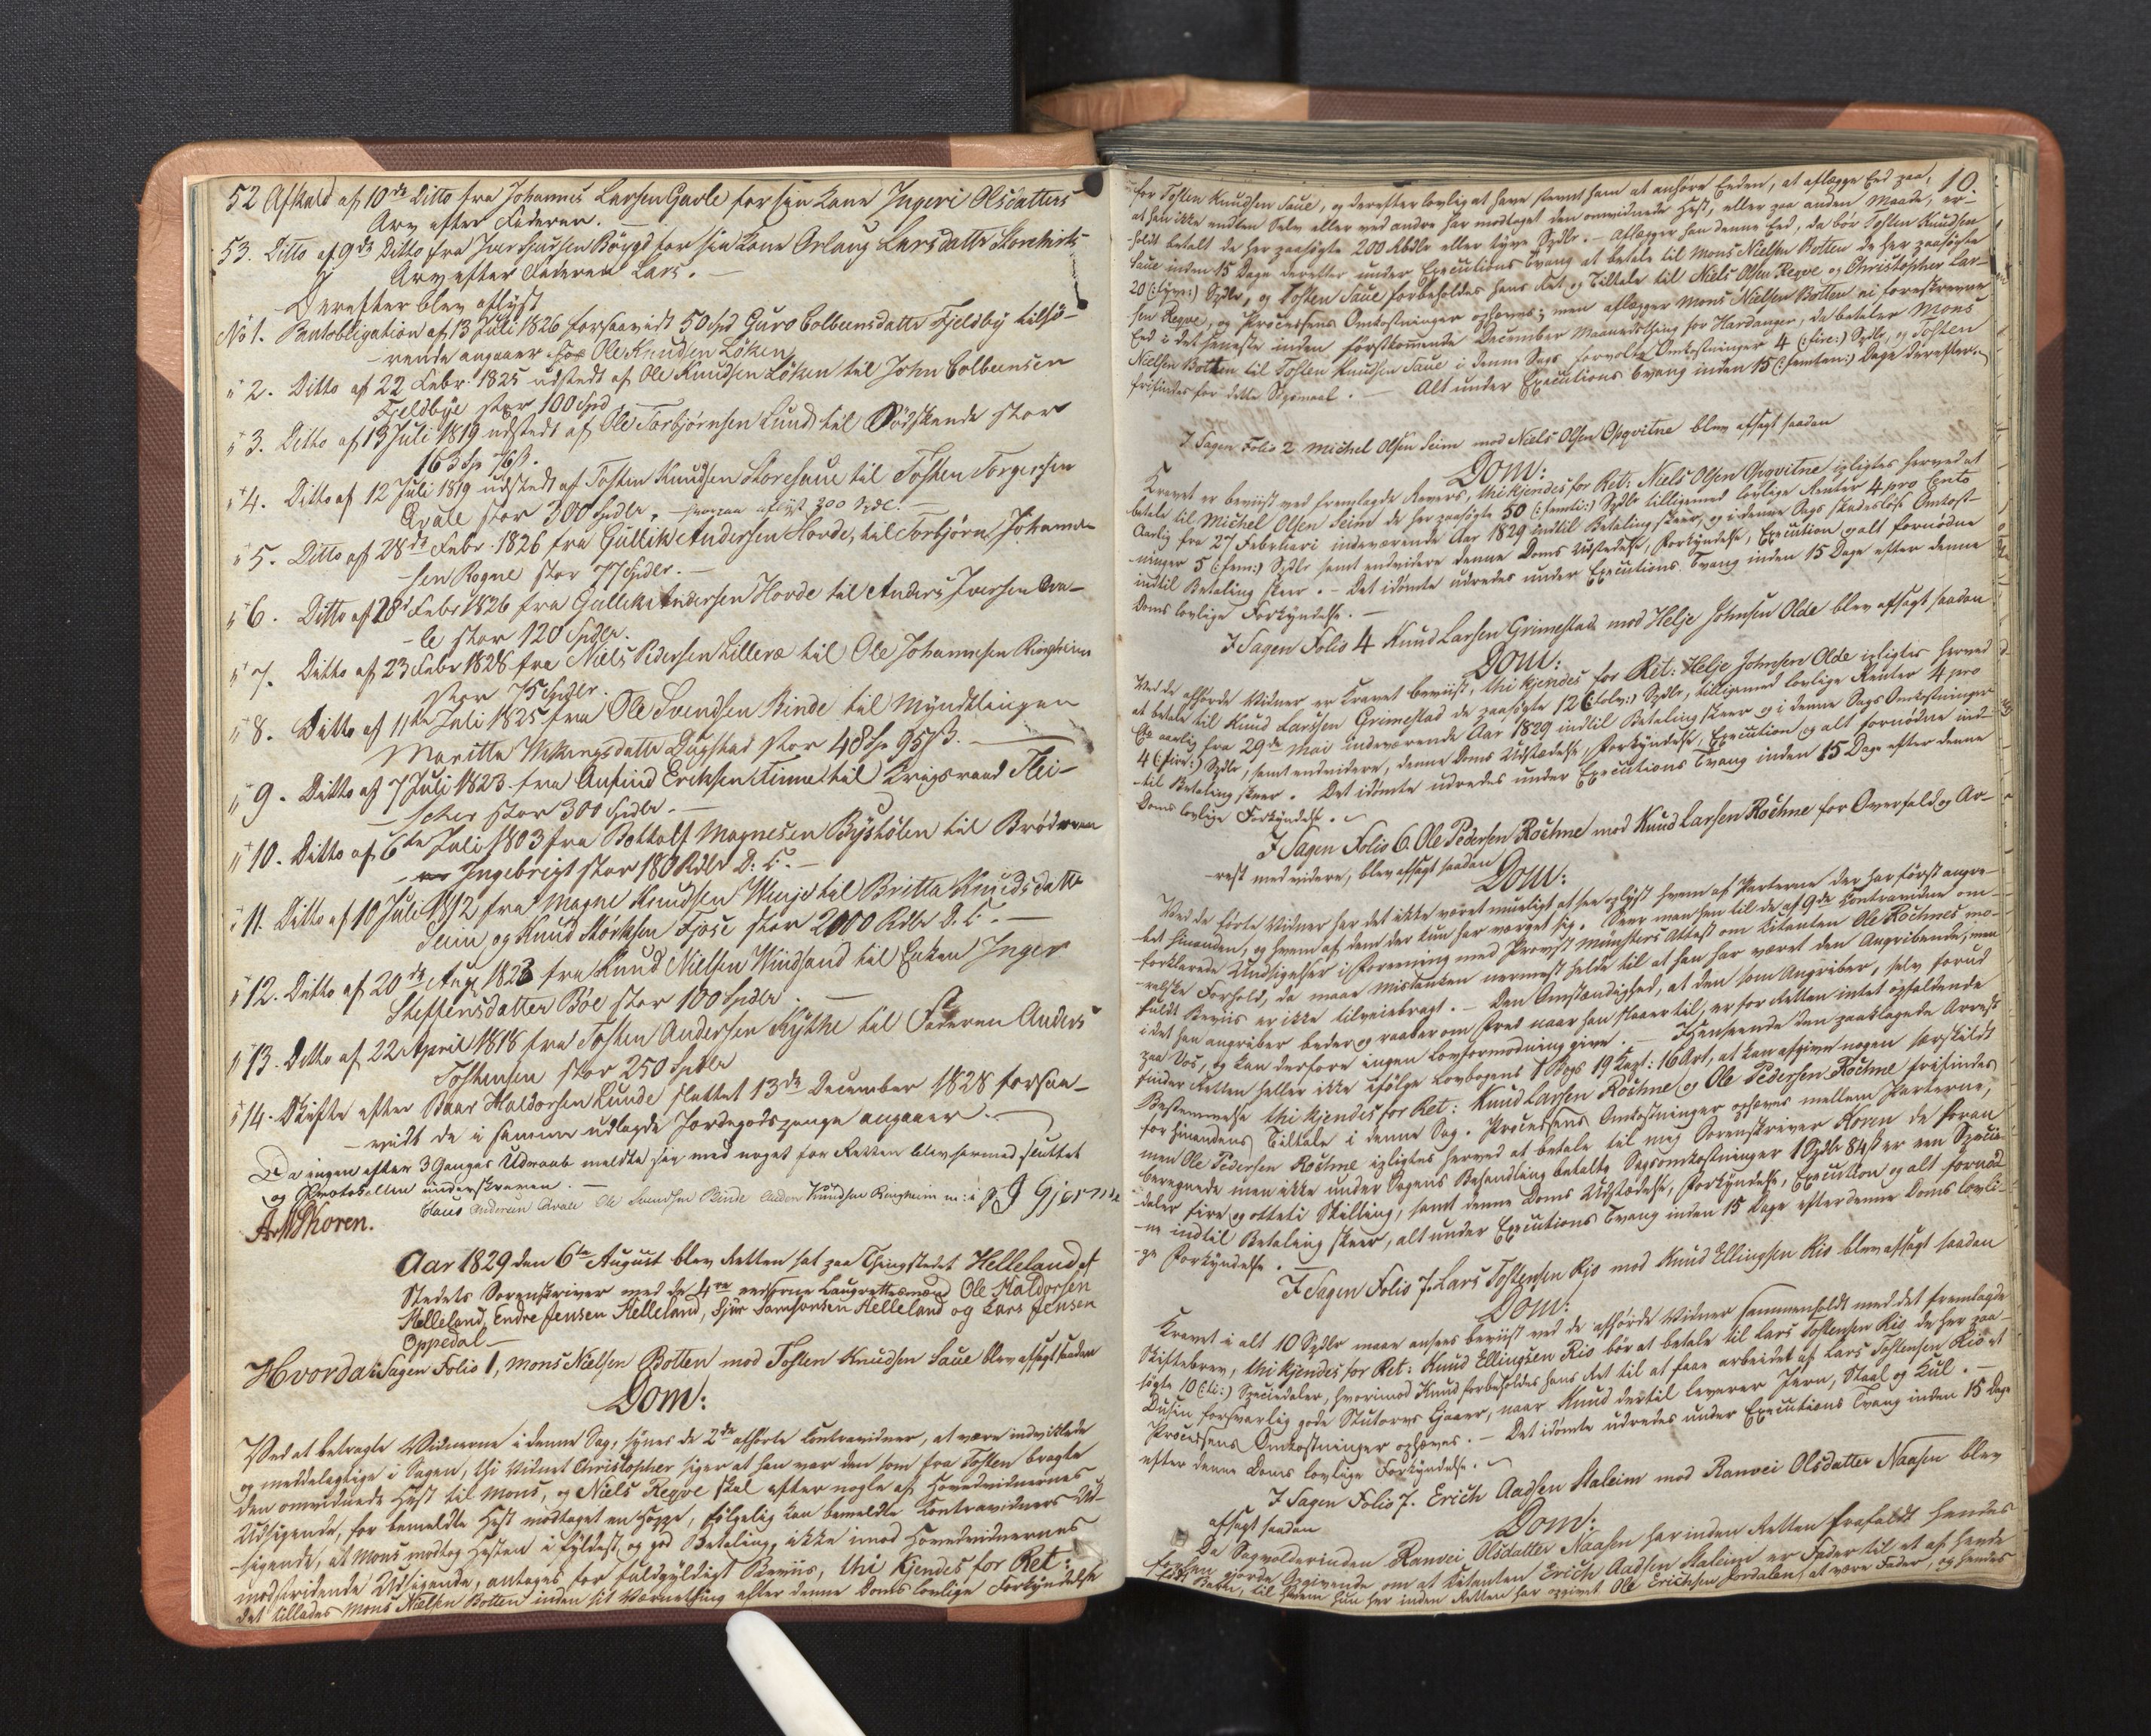 52 Afkald af 10de Ditto fra Johannes Larsen Gjerle for sin Kone Ingeri Olsdatters
Arv efter Faderen. —
53. Ditto af 9de Ditto fra Iver Sjursen Bøygd for sin Kone Orlaug Larsdatter
Arv efter Faderen Lars. —
Derefter blev aflyst
No 1. Pantobligation af 13 Juli 1826 forsaavidt 50 Spd Guro Colbeinsdatter Fjeldby tilhø-
rende angaaer for Ole Knudsen Løken
" 2. Ditto af 22 Febr: 1825 udstedt af Ole Knudsen Løken til John Colbeinsen
Fjeldbye stor 100 Spd
" 3. Ditto af 13 Juli 1819 udstedt af Ole Torbjørnsen Lund til Sødskende stor
163 Sp 76 ß.
" 4. Ditto af 12 Juli 1819 udstedt af Tosten Knudsen Storesaue til Tosten Torgersen
Qvale stor 300 Spdlr. — herpaa aflyst 200 Spdl. —
" 5. Ditto af 28de Febr: 1826 fra Gullik Andersen Horde, til Torbjørn Johanne-
sen Rogne stor 77 Spdlr. —
" 6. Ditto af 28de Febr 1826 fra Gullik Andersen Horde til Anders Iversen Qva-
le stor 120 Spdlr.
" 7. Ditto af 23 Febr 1828 fra Niels Pedersen Lilleræ til Ole Johannesen Ringheim
stor 75 Spdlr.
" 8. Ditto af 11te Juli 1825 fra Ole Svendsen Binde til Myndtlingen
Maritta Vikingsdatter Dugstad stor 48 Sp 95 ß. —
" 9. Ditto af 7 Juli 1823 fra Anfind Eriksen Finne til Krigsraad Flei-
scher stor 300 Spdlr. —
" 10. Ditto af 6te Juli 1803 fra Bottolf Magnesen Bystølen til Broderen
Ingebrigt stor 180 Rdlr D: C: —
" 11. Ditto af 10 Juli 1812 fra Magne Knudsen Winje til Britta Knudsdatter
Seim og Knud Størksen Fjose stor 2000 Rdlr D. C. —
" 12. Ditto af 20de Aug: 1823 fra Knud Nielsen Windsand til Enken Inger
Steffensdatter Bøe stor 100 Spdlr. —
" 13. Ditto af 22 April 1818 fra Tosten Andersen Kythe til Faderen Anders
Tostensen stor 250 Spdlr
" 14. Skifte efter Baar Haldorsen Lunde sluttet 13de December 1828 forsaa-
vidt de i samme udlagde Jordegodspenge angaaer. —
Da ingen efter 3 Ganges Udraab meldte sig med noget for Retten blev hermed sluttet
og Protokollen underskreven. —
A. M. Koren. Claus Andersen Qvale Ole Svendsen Binde Anders Knudsen Ringheim m: i P. J Gjerme
Aar 1829 den 6te August blev Retten sat paa Thingstedet Helleland af
Stedets Sorenskriver med de 4re eedsvorne Laugrettesmænd Ole Haldorsen
Helleland, Endre Jensen Helleland, Sjur Samsonsen Helleland og Lars Jensen
Oppedal —
Hvorda i Sagen Folio 1, Mons Nielsen Botten mod Tosten Knudsen Saue blev afsagt saadan
Dom:
Ved at betragte Vidnerne i denne Sag, synes de 2de afhørte Contravidner, at være indviklede
og meddelagtige i Sagen, thi Vidnet Christopher siger at han var den som fra Tosten bragte
den omvidnede Hest til Mons, og Niels Reqve skal efter nogle af Hovedvidnernes
Udsigende, for bemeldte Hest modtaget en Hoppe, følgelig kan bemeldte Contravidners Ud-
sigende, at Mons modtog Hesten i Fyldest og god Betaling, ikke imod Hovedvidnernes
modstridende Udsigende, antages for fuldgyldigt Beviis, thi kjendes for Ret:
Det tillades Mons Nielsen Botten inden sit Værnething efter denne Doms lovlige Forkyndelse
10.
for Tosten Knudsen Saue, og derefter lovligt at have stevnt ham at anhøre Eeden, at aflægge Eed paa,
at han ikke enten selv eller ved andre har modtaget den omvidnede Hest, eller paa anden Maade, er-
holdt betalt de her paasøgte 200 Rbdlr eller tyve Spdlr. — Aflægger han denne Eed, da bør Tosten Knudsen
Saue inden 15 Dage derefter under Executions Tvang at betale til Mons Nielsen Botten de her paasøgte
20 (: tyve :) Spdlr, og Tosten Saue forbeholdes hans Ret og Tiltale til Niels Olsen Reqve og Christopher Lar-
sen Reqve, og Processens Omkostninger ophæves; men aflægger Mons Nielsen Botten ei forestevnte
Eed i det seneste inden førstkommende December Maanedsthing for Hardanger, da betaler Mons
Nielsen Botten til Tosten Knudsen Saue i denne Sags forvoldte Omkostninger 4 (: fire :) Spdlr, og Tosten
frifindes for dette Søgsmaal. — Alt under Executions Tvang inden 15 (: femten :) Dage derefter. —
I Sagen Folio 2 Michel Olsen Seim mod Niels Olsen Opqvitne blev afsagt saadan
Dom:
Kravet er beviist ved fremlagde Revers, thi kjendes for Ret: Niels Olsen Opqvitne pligtes herved at
betale til Michel Olsen Seim de her paasøgte 50 (: femti :) Spdlr tilligemed lovlige Renter 4 pro Cento
Aarlig fra 27 Februari indeværende Aar 1829 indtil Betaling skeer, og i denne Sags skadesløse Omkost-
ninger 5 (: fem :) Spdlr samt endvidere denne Doms Udstedelse, Forkyndelse, Execution og alt fornødne
indtil Betaling skeer. — Det idømte udredes under Executions Tvang inden 15 Dage efter denne
Doms lovlige Forkyndelse. —
I Sagen Folio 4 Knud Larsen Grimestad mod Helje Johnsen Olde blev afsagt saadan
Dom:
Ved de afhørte Vidner er Kravet beviist, thi kjendes for Ret: Helje Johnsen Olde pligtes herved
at betale til Knud Larssen Grimestad de paasøgte 12 (: tolv :) Spdlr, tilligemed lovlige Renter 4 pro
Ct: aarlig fra 29de Mai indeværende Aar 1829 indtil Betaling skeer og i denne Sags Omkostninger
4 (: fire :) Spdlr, samt endvidere, denne Doms Udstædelse, Forkyndelse, Execution og alt fornødne ind-
til Betaling skeer. Det idømte udredes under Executions Tvang inden 15 Dage efter denne
Doms lovlige Forkyndelse. —
I Sagen Folio 6. Ole Pedersen Rochne mod Knud Larsen Rochne for Overfald og Ar-
rest med videre, blev afsagt saadan
Dom:
Ved de førte Vidner har det ikke været mueligt at see oplyst hvem af Parterne der har først angre-
bet hinanden, og hvem af dem der kun har værget sig. Seer man hen til de af 9de Contravidner om-
forklarede Undsigelser i Forening med Provst Münsters Attest om Citanten Ole Rochnes mo-
ralske Forhold, da maae Mistanken nærmest helde til at han har været den Angribende, men
fuldt Beviis er ikke tilveiebragt. — Den Omstændighed, at den som angriber, selv forud
i det han angriber beder og raaber om Fred naar han slaaer til, er for Retten intet opfaldende
paa Vos, og kan derfore ingen Lovformodning give. — Ihenseende den paaklagede Arrest
finder Retten heller ikke ifølge Lovbogens 1 Bogs 19 Capt: 16 Art, at kan afgive nogen særskildt
Bestemmelse thi kjendes for Ret: Knud Larsen Rochne og Ole Pedersen Rochne frifindes
for hinandens Tiltale i denne Sag. Processens Omkostninger ophæves mellem Parterne,
men Ole Pedersen Rochne pligtes herved at betale til mig Sorenskriver Koren de foran
beregnede men ikke under Sagens Behandling betalte Sagsomkostninger 1 Spdlr 84 ß er een Specie-
daler fire og otteti Skilling, samt denne Doms Udstædelse, Forkyndelse, Execution og alt fornød-
ne indtil Betaling skeer, alt under Executions Tvang inden 15 Dage efter denne Doms lovli-
ge Forkyndelse. —
I Sagen Folio 7. Lars Tostensen Rio mod Knud Ellingsen Rio blev afsagt saadan
Dom:
Kravet i alt 10 Spdlr maae ansees beviist ved de afhørte Vidner sammenholdt med det fremlagde
Skiftebrev, thi kjendes for Ret: Knud Ellingsen Rio bør at betale til Lars Tostensen Rio de her paa-
søgte 10 (: ti :) Speciedaler, hvorimod Knud forbeholdes hans Ret til at faae arbeidet af Lars Tostensen Rio et
Dusin forsvarlig gode Ljaaer, naar Knud dertil leverer Jern, Staal og Kul. —
Processens Omkostninger ophæves. — Det idømte udredes under Executions Tvang inden 15 Dage
efter denne Doms lovlige Forkyndelse. —
I Sagen Folio 7. Erich Aadsen Staleim mod Ranvei Olsdatter Naasen blev
afsagt saadan
Dom:
Da Sagvolderinden Ranvei Olsdatter Naasen har inden Retten frafaldt hendes
forhen gjorde Opgivende om at Citanten Erich Aadsen Staleim er Fader til et af hende
født Barn, til hvem hun her inden Retten har opgivet Ole Erichsen Jordalen at være Fader, og hendes